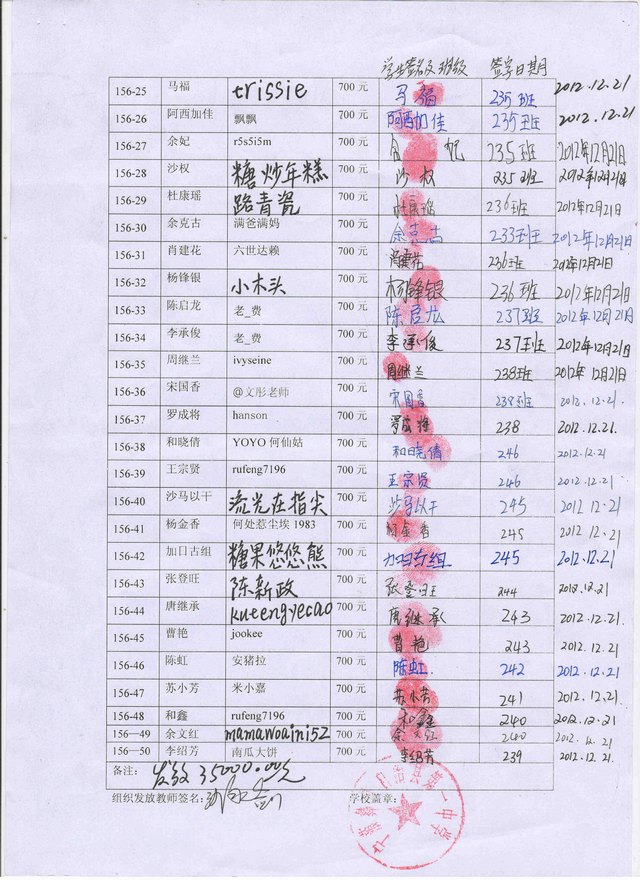 学生签名及班级 签字日期
156-25 马福 trissie 700 元 马福 235班 2012.12.21
156-26 阿西加佳 飘飘 700 元 阿西加佳 235班 2012.12.21
156-27 余妃 r5s5i5m 700 元 余妃 235班 2012年12月21日
156-28 沙权 糖炒年糕 700 元 沙权 235班 2012年12月21日
156-29 杜康瑶 路青瓷 700 元 杜康瑶 236班 2012年12月21日
156-30 余克古 满爸满妈 700 元 余克古 233班 2012年12月21日
156-31 肖建花 六世达赖 700 元 肖建花 236班 2012年12月21日
156-32 杨锋银 小木头 700 元 杨锋银 236班 2012年12月21日
156-33 陈启龙 老_费 700 元 陈启龙 237班 2012年12月21日
156-34 李承俊 老_费 700 元 李承俊 237班 2012年12月21日
156-35 周继兰 ivyseine 700 元 周继兰 238班 2012年12月21日
156-36 宋国香 @文彤老师 700 元 宋国香 238班 2012.12.21.
156-37 罗成将 hanson 700 元 罗成将 238 2012.12.21.
156-38 和晓倩 YOYO 何仙姑 700 元 和晓倩 246 2012.12.21
156-39 王宗贤 rufeng7196 700 元 王宗贤 246 2012.12.21
156-40 沙马以干 流光在指尖 700 元 沙马以干 245 2012.12.21
156-41 杨金香 何处惹尘埃 1983 700 元 杨金香 245 2012.12.21
156-42 加日古组 糖果悠悠熊 700 元 加日古组 245 2012.12.21
156-43 张登旺 陈新政 700 元 张登旺 244 2012.12.21
156-44 唐继承 kueengyecao 700 元 唐继承 243 2012.12.21
156-45 曹艳 jookee 700 元 曹艳 243 2012.12.21
156-46 陈虹 安猪拉 700 元 陈虹 242 2012.12.21
156-47 苏小芳 米小嘉 700 元 苏小芳 241 2012.12.21
156-48 和鑫 rufeng7196 700 元 和鑫 240 2012.12.21
156—49 余文红 mamawoaini52 700 元 余文红 240 2012.12.21
156—50 李绍芳 南瓜大饼 700 元 李绍芳 239 2012.12.21
备注： 发放35000.00元
组织发放教师签名： 学校盖章：
县第一中学